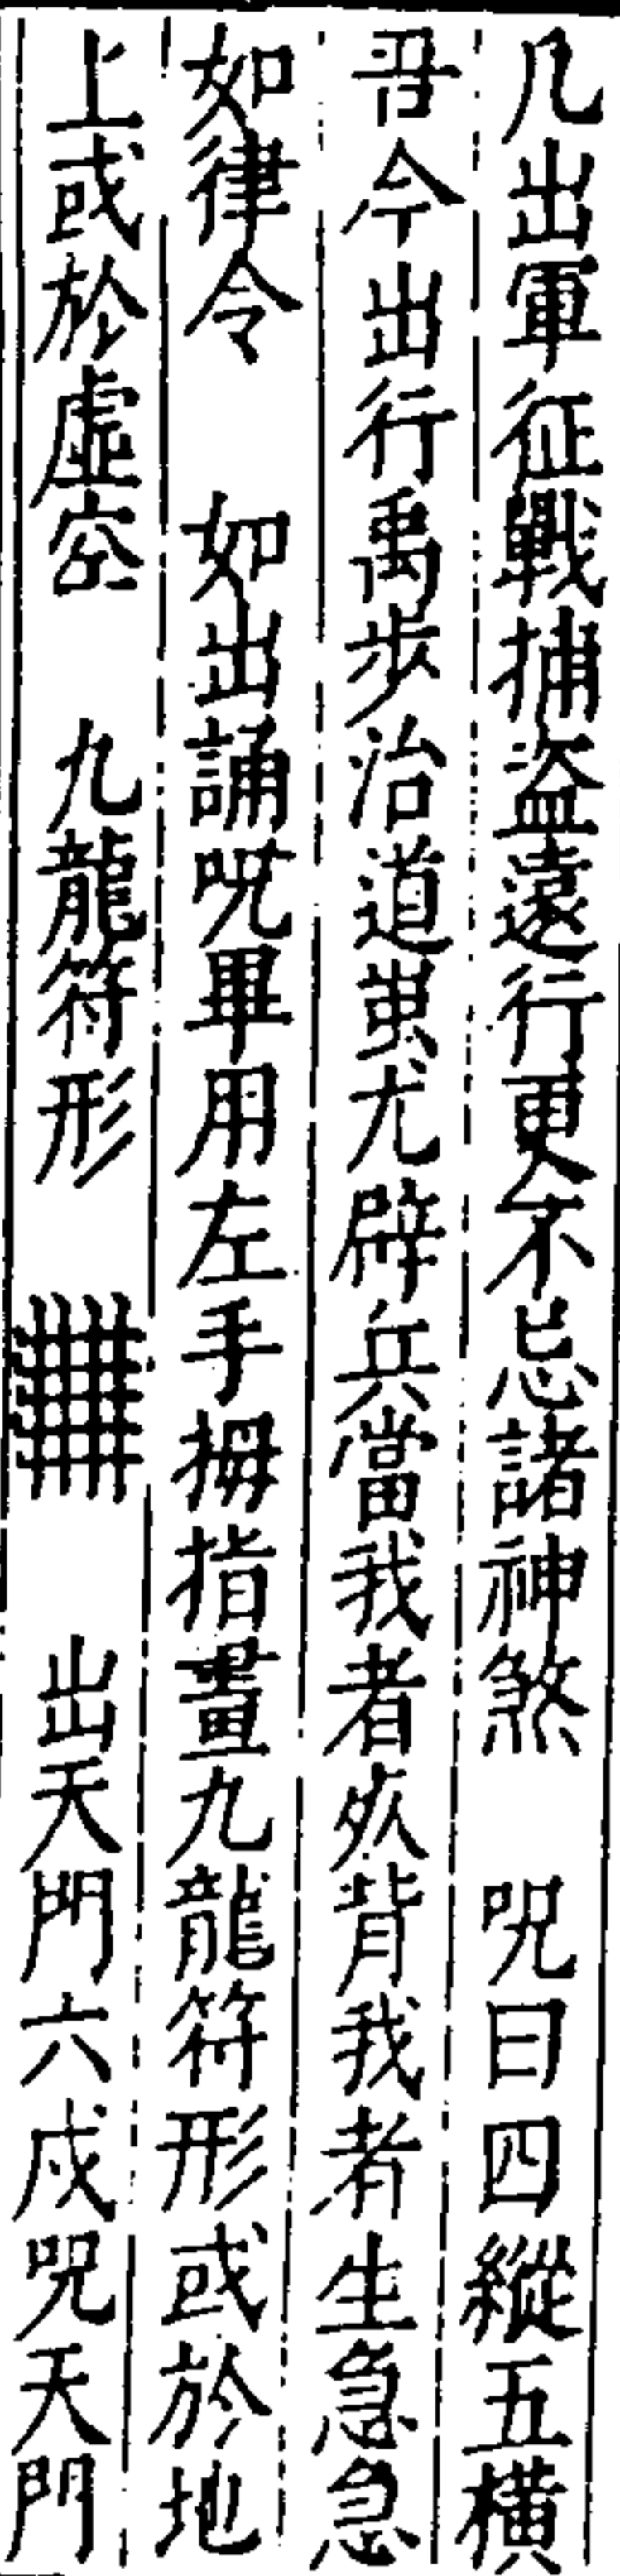 凡出軍征戰捕盗遠行更不忌諸神煞　呪曰四縱五橫
吾今出行禹步治道蚩尤辟兵當我者死背我者生急急
如律令　如出誦呪畢用左手拇指畫九龍符形或於地
上或於虛空　九龍符形　出天門六戍呪天門